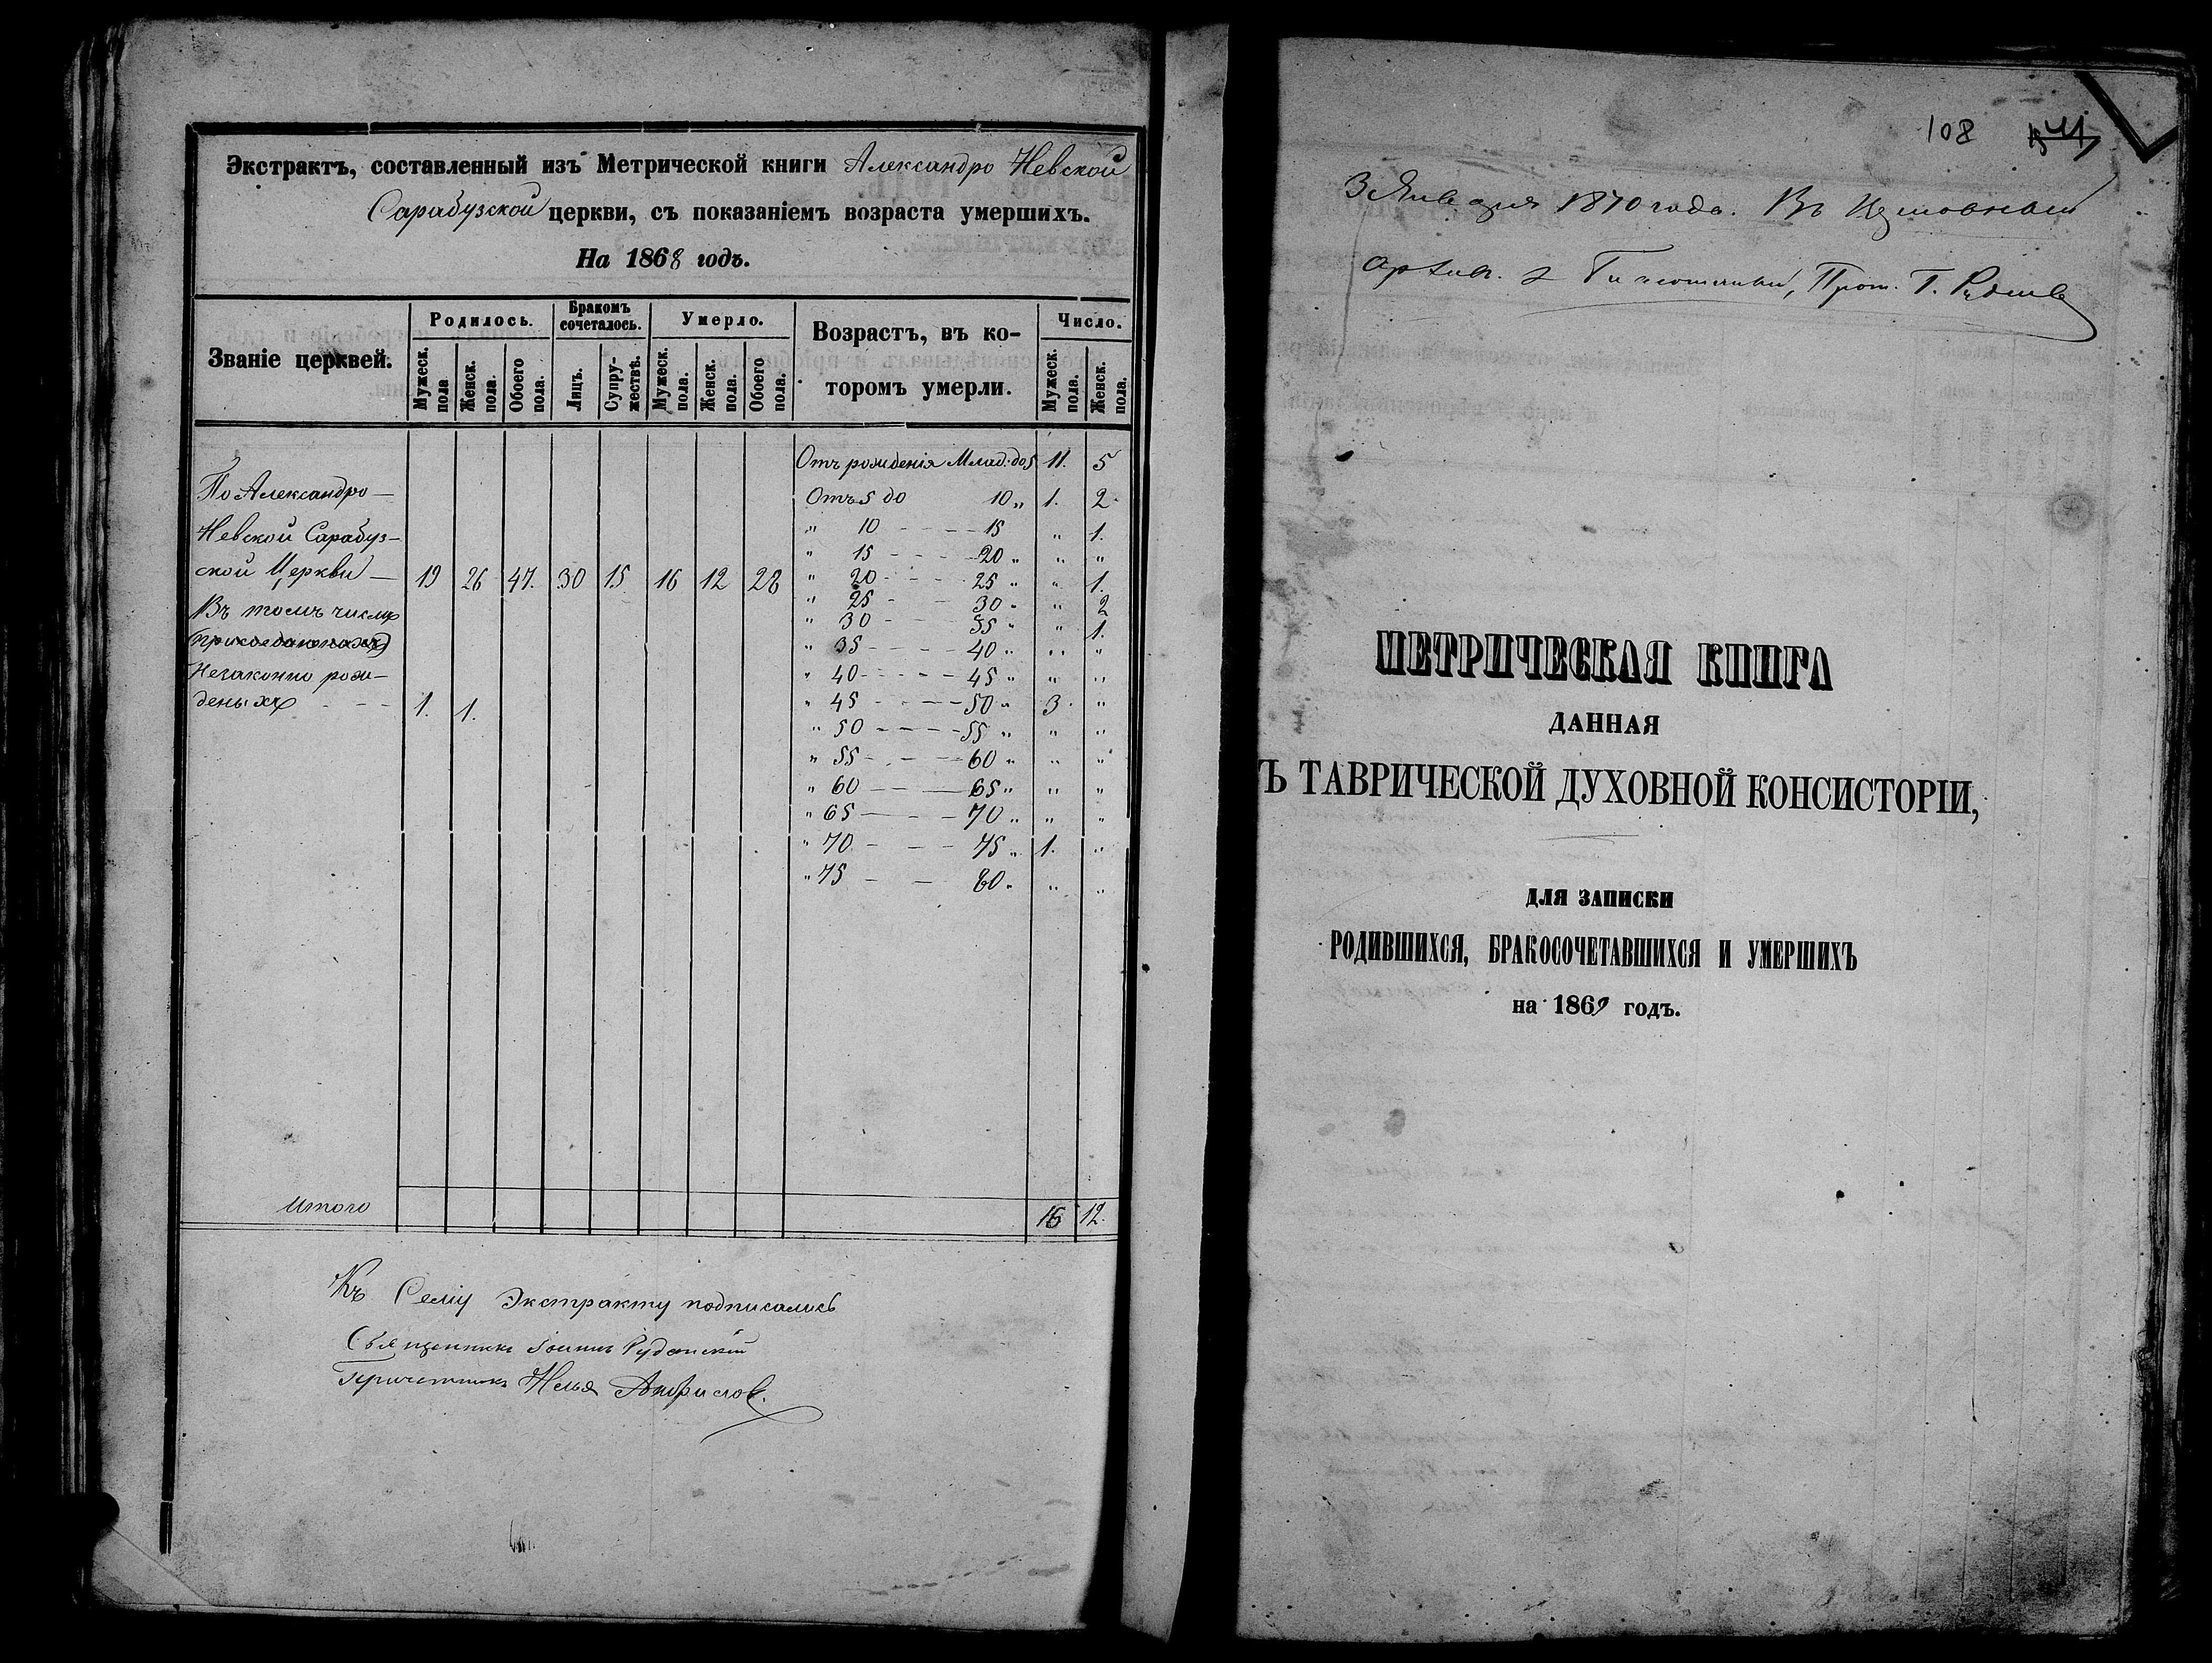 Экстрактъ, составленный изъ Метрической книги Александро Невской
Сарабузской церкви, съ показаніемъ возраста умершихъ.
На 1868 годъ.
Званіе церквей.
Родилось.
Бракомъ сочеталось.
Умерло.
Возрастъ, въ ко-
торомъ умерли.
Число.
Мужеск. пола
Женск. пола.
Обоего пола.
Лицъ.
Супру-жествъ.
Мужеск. пола.
Женск. пола.
Обоего пола.
Мужеск. пола.
Женск. пола.
Отъ рожденія Млад. до 5 11. 5
По Александро—
Отъ 5 до 10 „ 1. 2.
Невской Сарабуз-
„ 10 - - - 15 „ 1.
„ 15 - - - 20 „ „ „
ской Церкви — 19 26 47. 30 15 16 12 28
„ 20 - - - 25 „ „ 1.
Въ томъ числѣ
„ 25 - - 30 „ „ 2
„ 30 - - - 35 „ „ 1.
„ 35 - - - 40 „ „ „
Незаконно рож-
„ 40 - - - - 45 „ „ „
деныхъ - - - 1. 1.
„ 45 - - - 50 „ 3. „
„ 50 - - - - 55 „ „ „
„ 55 - - - 60 „ „ „
„ 60 — — — 65 „ „ „
„ 65 — - - 70 „ „ „
„ 70 - - - 75 „ 1. „
„ 75 — — 80 „ „ „
Итого 16 12.
Къ Сему Экстракту подписались
Священникъ Іоаннъ
Причетникъ Илья
108
3 Января 1870 года. Въ
МЕТРИЧЕСКАЯ КНИГА
ДАННАЯ
Ъ ТАВРИЧЕСКОЙ ДУХОВНОЙ КОНСИСТОРІИ,
ДЛЯ ЗАПИСКИ
РОДИВШИХСЯ, БРАКОСОЧЕТАВШИХСЯ И УМЕРШИХЪ
на 1869 годъ.